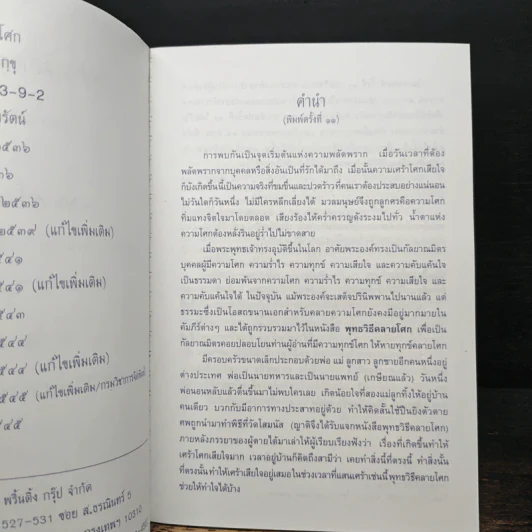 โศก
กขุ
3-9-2
รรัตน์
๒๕๓๖
๓๖
๒๕๓๖
๒๕๓๙ (แก้ไขเพิ่มเติม)
๕๔๑
๕๔๑ (แก้ไขเพิ่มเติม)
๕๔๓
๕๔๔
๕๔๔ (แก้ไขเพิ่มเติม)
๕๔๕ (แก้ไขเพิ่มเติม/กรมวิชาการจัดพิมพ์)
๕๔๕
พริ้นติ้ง กรุ๊ป จำกัด
527-531 ซอย ส.ธรณินทร์ 5
กรุงเทพฯ 10310
คำนำ
(พิมพ์ครั้งที่ ๑๑)
การพบกันเป็นจุดเริ่มต้นแห่งความพลัดพราก เมื่อวันเวลาที่ต้อง
พลัดพรากจากบุคคลหรือสิ่งอันเป็นที่รักได้มาถึง เมื่อนั้นความเศร้าโศกเสียใจ
ก็บังเกิดขึ้นนี้เป็นความจริงที่ขมขื่นและปวดร้าวที่คนเราต้องประสบอย่างแน่นอน
ไม่วันใดก็วันหนึ่ง ไม่มีใครหลีกเลี่ยงได้ มวลมนุษย์จึงถูกลูกศรคือความโศก
ทิ่มแทงจิตใจมาโดยตลอด เสียงร้องไห้คร่ำครวญดังระงมไปทั่ว น้ำตาแห่ง
ความโศกต้องหลั่งรินอยู่ร่ำไปไม่ขาดสาย
เมื่อพระพุทธเจ้าทรงอุบัติขึ้นในโลก อาศัยพระองค์ทรงเป็นกัลยาณมิตร
บุคคลผู้มีความโศก ความร่ำไร ความทุกข์ ความเสียใจ และความคับแค้นใจ
เป็นธรรมดา ย่อมพ้นจากความโศก ความร่ำไร ความทุกข์ ความเสียใจ และ
ความคับแค้นใจได้ ในปัจจุบัน แม้พระองค์จะเสด็จปรินิพพานไปนานแล้ว แต่
ธรรมะซึ่งเป็นโอสถขนานเอกสำหรับคลายความโศกยังคงมีอยู่มากมายใน
คัมภีร์ต่างๆ และได้ถูกรวบรวมมาไว้ในหนังสือ พุทธวิธีคลายโศก เพื่อเป็น
กัลยาณมิตรคอยปลอบโยนท่านผู้อ่านที่มีความทุกข์โศก ให้หายทุกข์คลายโศก
มีครอบครัวขนาดเล็กประกอบด้วยพ่อ แม่ ลูกสาว ลูกชายอีกคนหนึ่งอยู่
ต่างประเทศ พ่อเป็นนายทหารและเป็นนายแพทย์ (เกษียณแล้ว) วันหนึ่ง
พ่อนอนหลับแล้วตื่นขึ้นมาไม่พบใครเลย เกิดน้อยใจที่สองแม่ลูกทิ้งให้อยู่บ้าน
คนเดียว บวกกับมีอาการทางประสาทอยู่ด้วย ทำให้คิดสั้นใช้ปืนยิงตัวตาย
ศพถูกนำมาทำพิธีที่วัดโสมนัส (ญาติจึงได้รับแจกหนังสือพุทธวิธีคลายโศก)
ภายหลังภรรยาของผู้ตายได้มาเล่าให้ผู้เรียบเรียงฟังว่า เรื่องที่เกิดขึ้นทำให้
เศร้าโศกเสียใจมาก เวลาอยู่บ้านก็คิดถึงสามีว่า เคยทำสิ่งนี้ที่ตรงนี้ ทำสิ่งนั้น
ที่ตรงนั้นทำให้เศร้าเสียใจอยู่เสมอในช่วงเวลาที่แสนเศร้าเช่นนี้พุทธวิธีคลายโศก
ช่วยให้ทำใจได้บ้าง